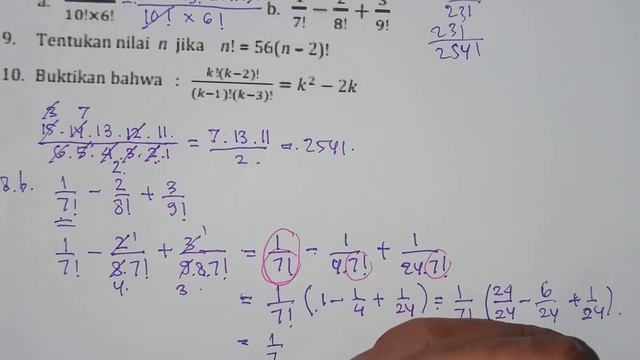 a. 10!×6! 10! × 6! b. 1/7! − 2/8! + 3/9!
9. Tentukan nilai n jika n! = 56(n − 2)!
10. Buktikan bahwa : k!(k−2)! / (k−1)!(k−3)! = k² − 2k
231
231
2541
3 7
15.14.13.12.11. / 6.5.4.3.2.1 = 7.13.11 / 2. = .2541.
2.
8.b. 1/7! − 2/8! + 3/9!
1/7! − 2/8.7! + 3/9.8.7! = 1/7! − 1/4.7! + 1/24.7!
1 1
4. 3.
= 1/7! (1 − 1/4 + 1/24) = 1/7! (24/24 − 6/24 + 1/24).
= 1/7